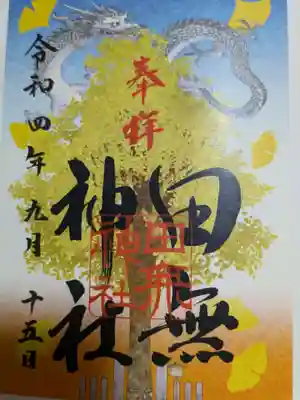 奉拝
田無
神社
田無
神社
令和四年九月
十五日